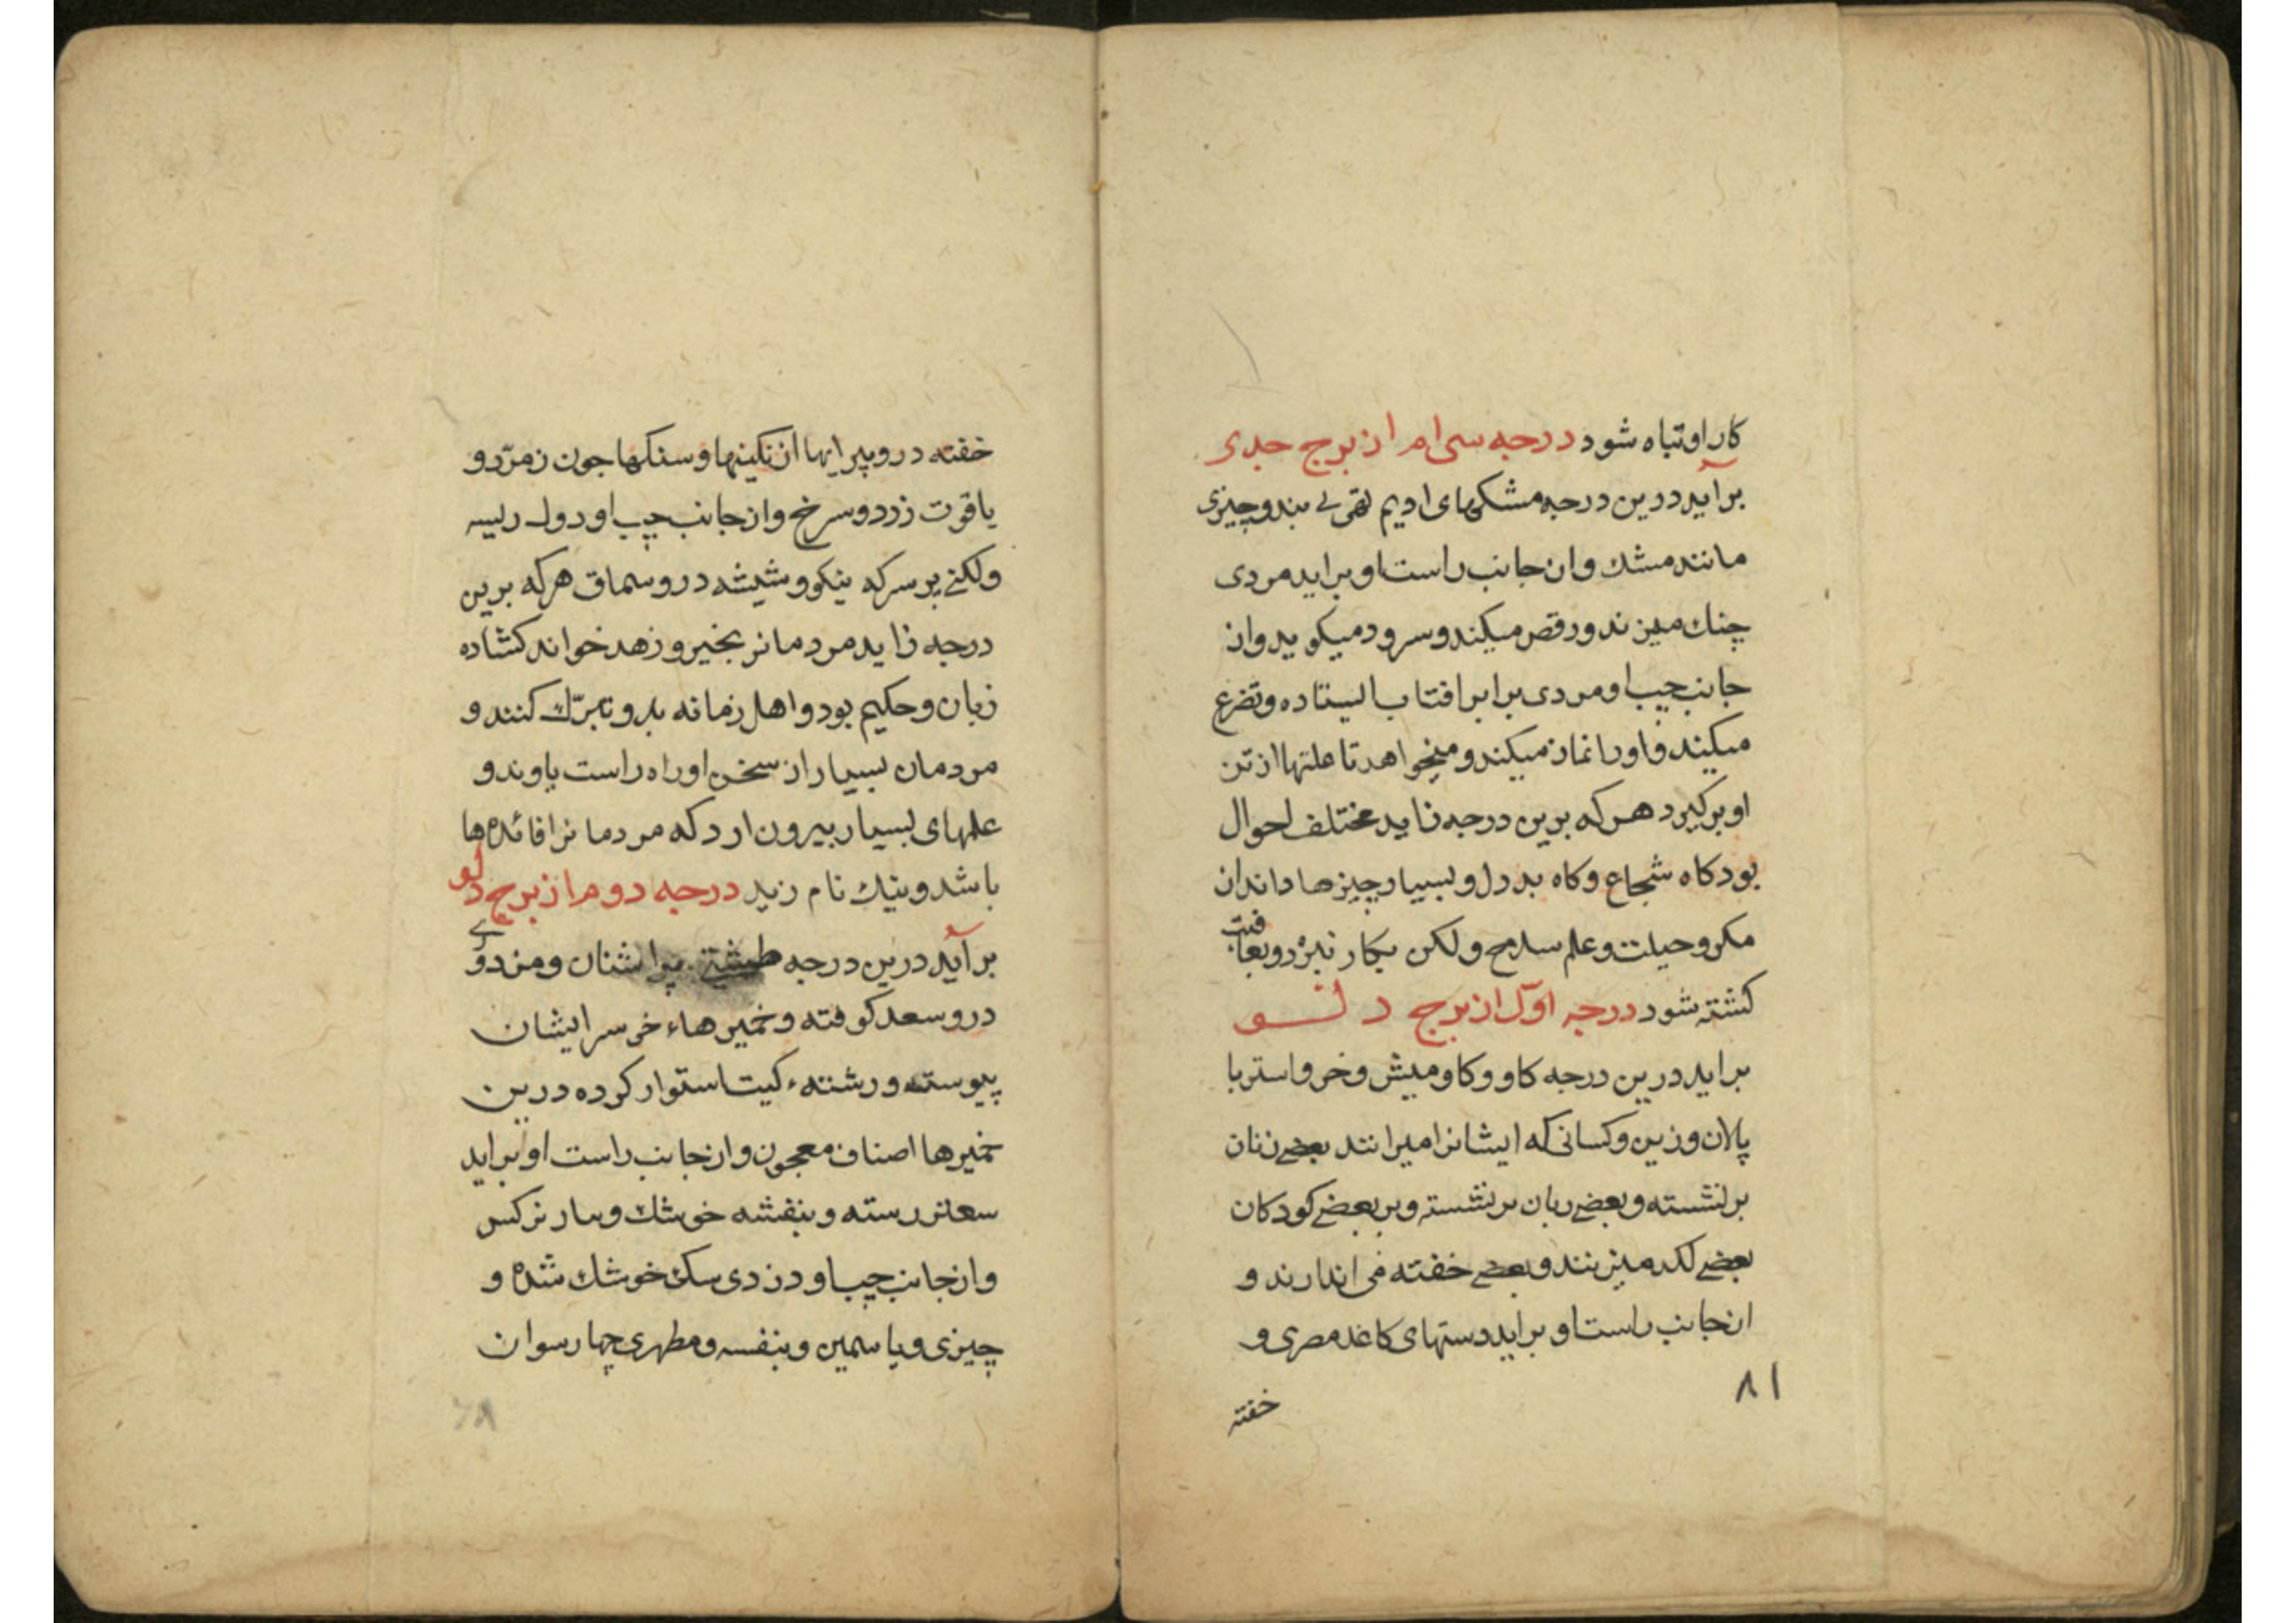 کار او تباه شود درجه سی ام از برج جدی
برآید درین درجه مشکهای ادیم بند و چیزی
مانند مشک و از جانب راست او براید مردی
چنک میزند و رقص میکند و سرود میکوید و از
جانب چپ او مردی برابر افتاب ایستاده و تضرع
میکند و او را نماز میکند و میخواهد تا علتها از تن
او برکیرد هر که برین درجه زاید مختلف احوال
بود کاه شجاع و کاه بد دل و بسیار چیزها داند از
مکر و حیلت و علم سلاح و لکن بکار نبرد و بعاقبت
کشته شود درجه اول از برج دلو
براید درین درجه کاو و کاومیش و خر و استر با
پالان و زین و کسانی که ایشانرا میرانند بعضی زنان
برنشسته و بعضی بر نشسته و بر بعضی کودکان
بعضی لکد میزنند و بعضی خفته می اندازند و
از جانب راست او براید دستهای کاغد مصری و
خفته
۸۱
خفته درو پیرایها از نکینها و سنکها جون زمرّد و
یاقوت زرد و سرخ و از جانب چپ او
ولکنی پر سرکه نیکو و شیشه درو سماق هرکه برین
درجه زاید مردمانرا بخیر و زهد خواند کشاده
زبان و حکیم بود و اهل زمانه بدو تبرّک کنند و
مردمان بسیار از سخن او راه راست یاوند و
علمهای بسیار بیرون ارد که مردمانرا فائدها
باشد و بنیک نام زید درجه دوم از برج دلو
برآید درین درجه طشتی پر اشنان و مردی
درو سعد کوفته و خمیرهاء
پیوسته و رشتهء استوار کرده درین
خمیرها اصناف معجون و از جانب راست او براید
سعتر رسته و بنفشه خوشک و نرکس
و از جانب چپ او خوشک شده و
چیزی و یاسمین و بنفسه و مطهری چهارسو از